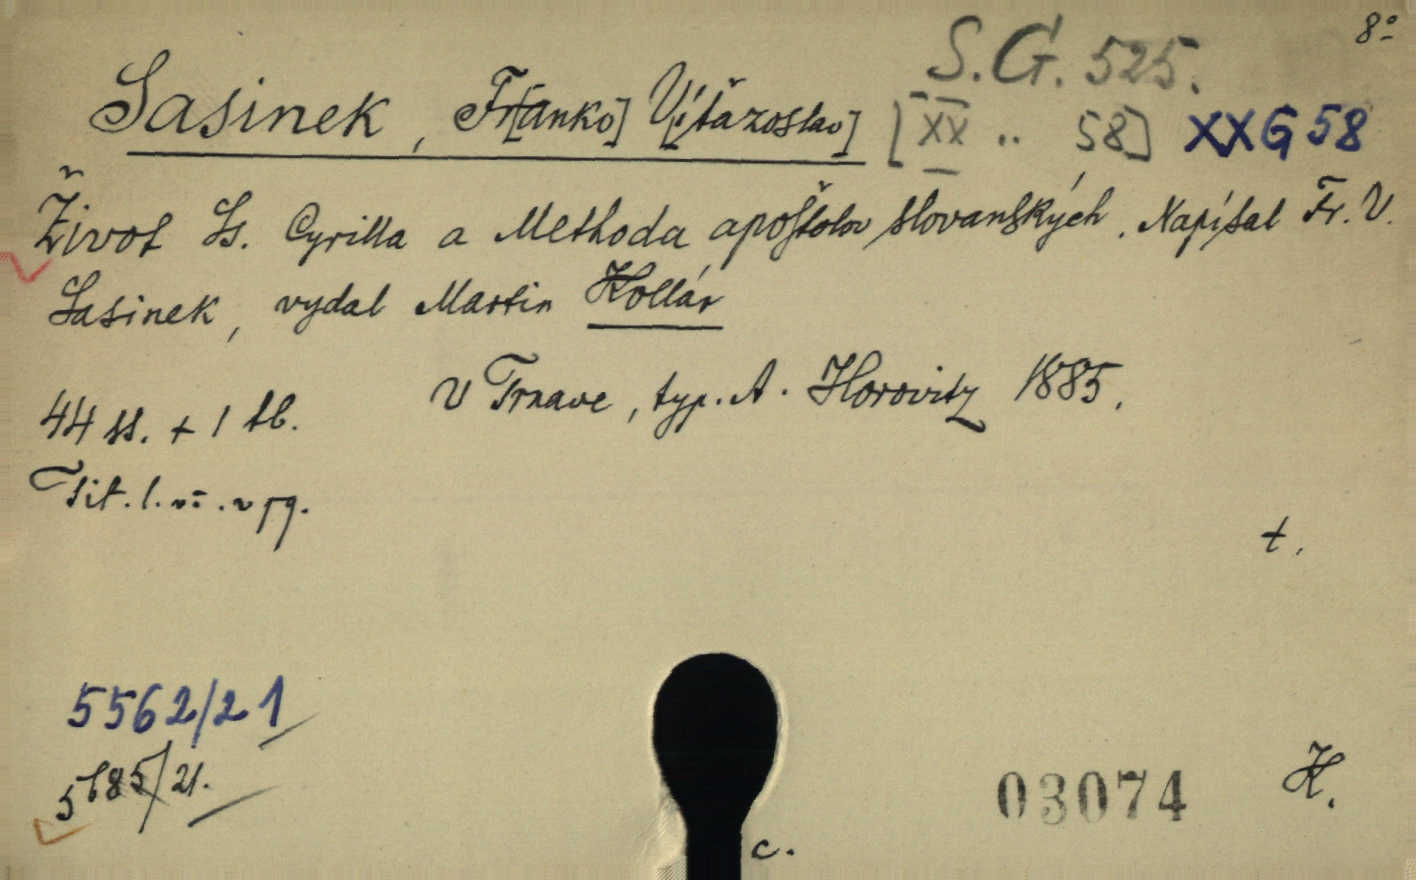 8°
S.G. 525.
Sasinek, Fr[anko] V[íťazoslav] [XX .. 58] XX G 58
Život Ss. Cyrilla a Methoda apoštolov slovanských. Napísal Fr. V.
Sasinek, vydal Martin Kollár
V Trnave, typ. A. Horovitz 1885.
44 ss. + 1 tb.
Tit. l.
t.
5562/21
5685/21.
03074
H.
c.